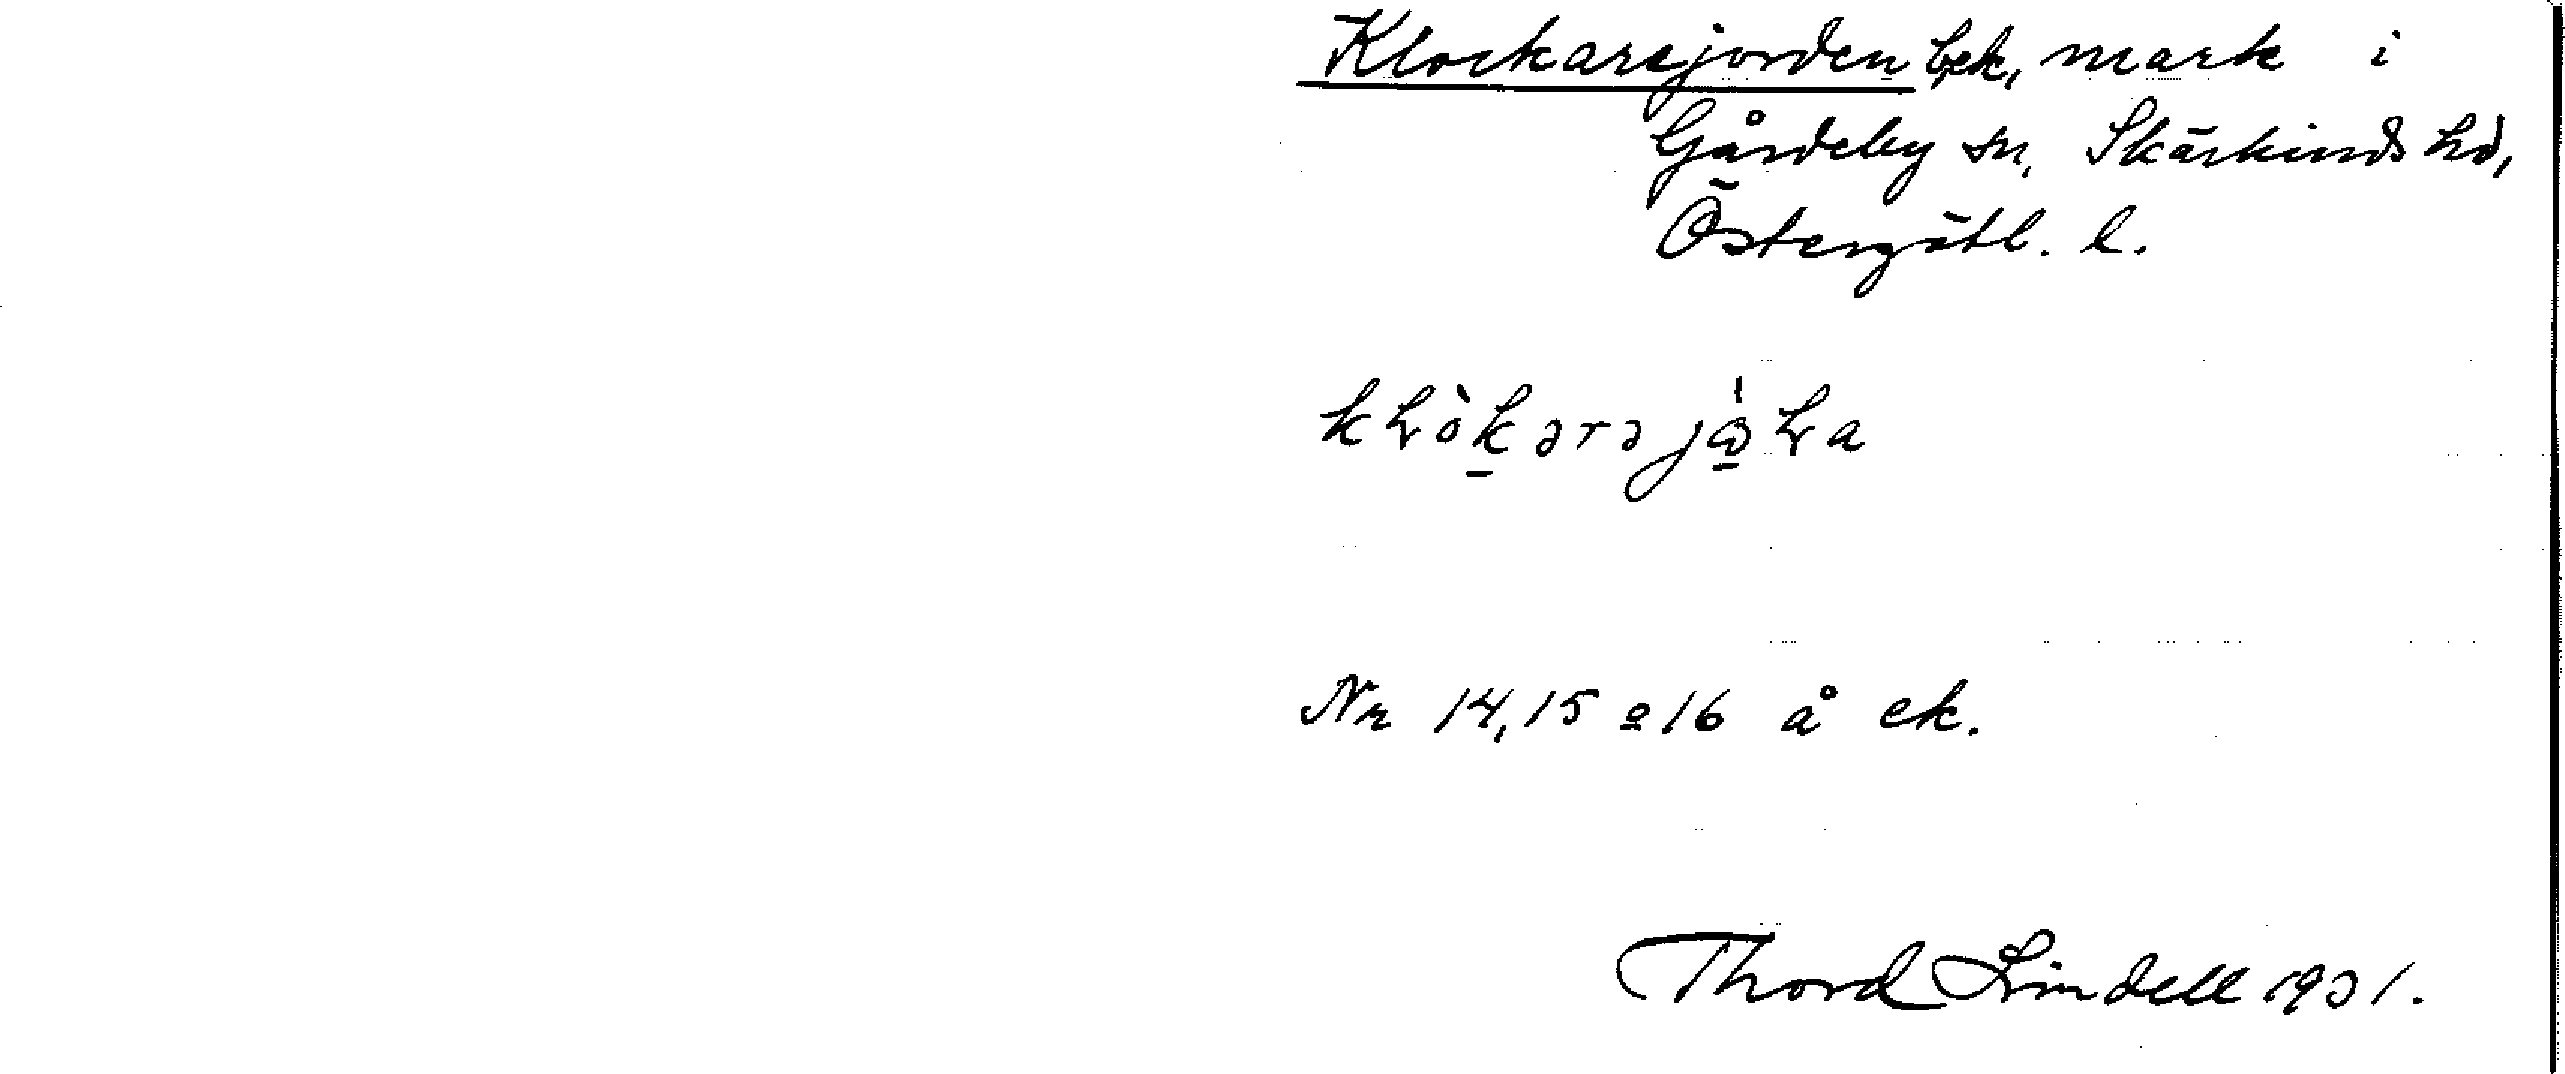 Klockarejorden bek. mark i
Gårdeby sn, Skärkinds hd,
Östergötl. l.
Nr 14, 15 o 16 å ek.
Thord Lindell 1931.